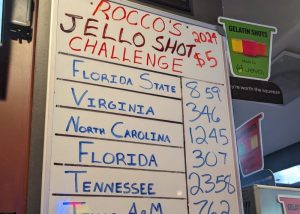 ROCCO'S
JELLO SHOT 2024
CHALLENGE $5
FLORIDA STATE 859
VIRGINIA 346
NORTH CAROLINA 1245
FLORIDA 307
TENNESSEE 2358
A&M 762
GELATIN SHOTS
you're worth the squeeze